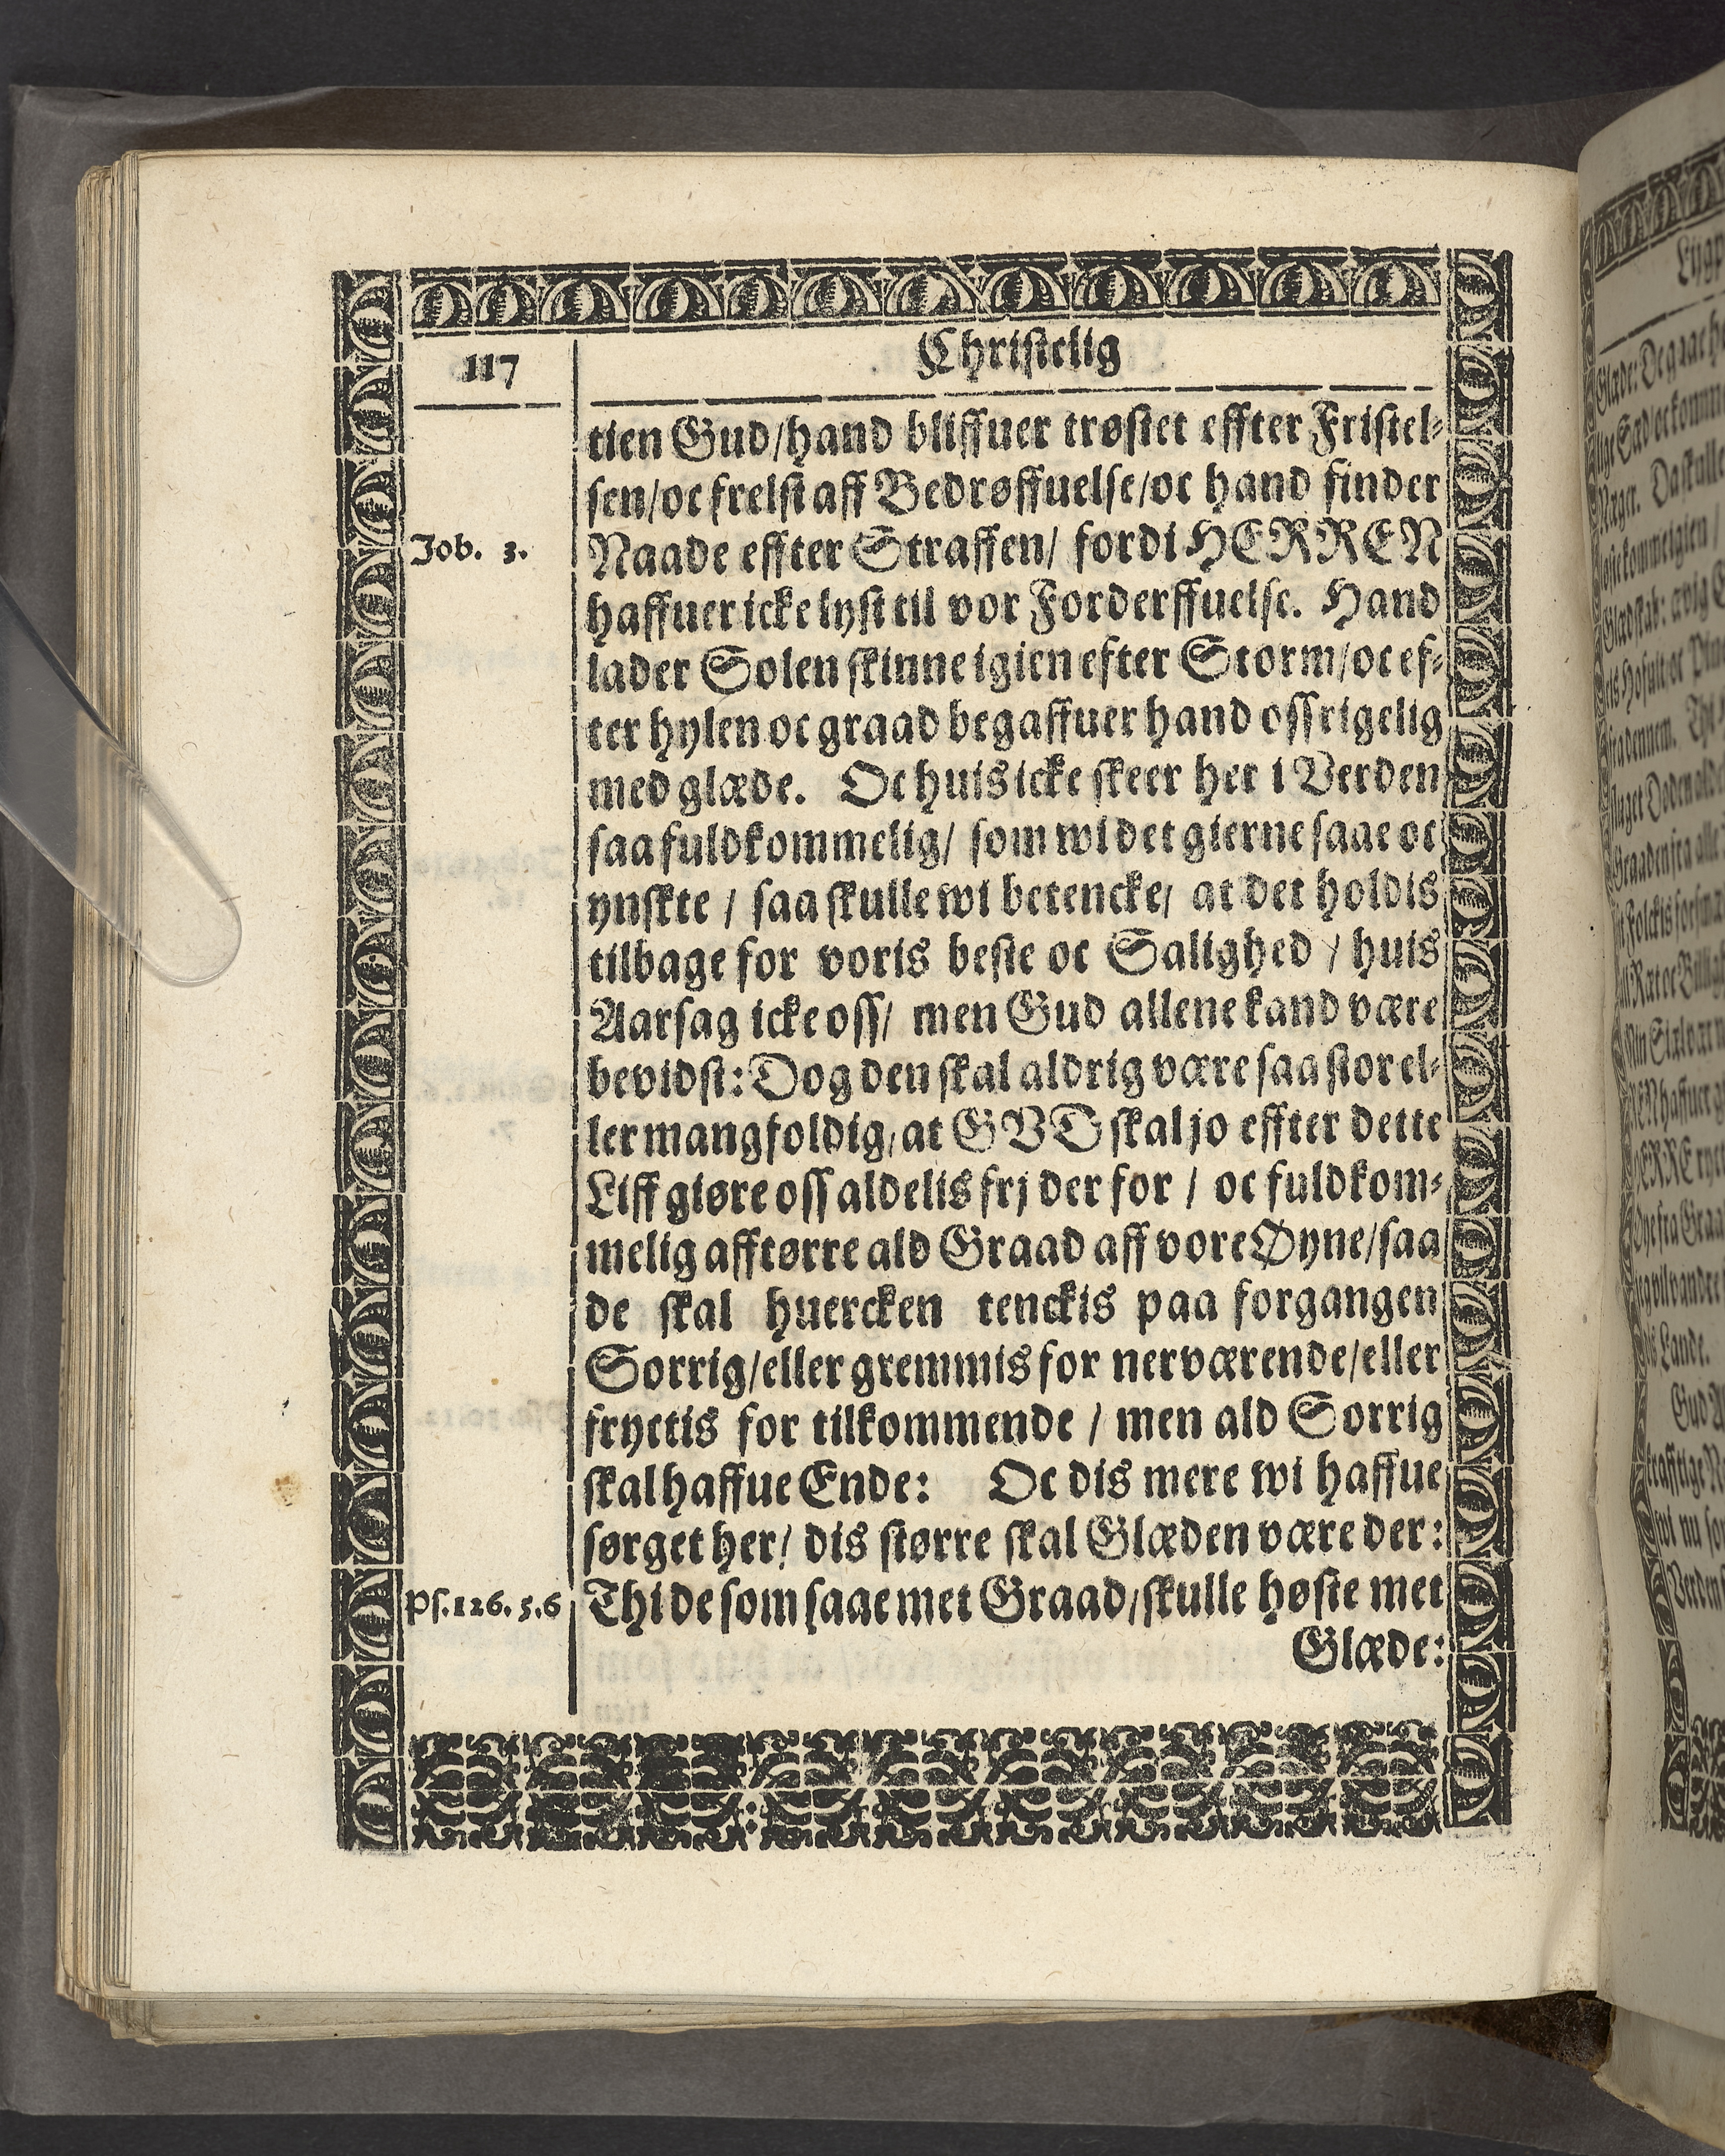 117
Christelig
tien Gud/hand bliffuer trøstet effter Fristel-
sen/oc frelst aff Bedrøffuelse/oc hand finder
Job. 3.
Naade effter Straffen/ fordi HERREN
haffuer icke lyst til vor Forderffuelse. Hand
lader Solen skinne igien efter Storm/oc ef-
ter hylen oc graad begaffuer hand oss rigelig
med glæde. Oc huis icke skeer her i Verden
saa fuldkommelig/ som wi det gierne saae oc
ynskte / saa skulle wi betencke/ at det holdis
tilbage for voris beste oc Salighed / huis
Aarsag icke oss/ men Gud allene kand være
bevidst: Dog den skal aldrig være saa stor el-
ler mangfoldig, at GVD skal jo effter dette
Liff giøre oss aldelis frj der for / oc fuldkom-
melig afftørre ald Graad aff vore Øyne/saa
de skal huercken tenckis paa forgangen
Sorrig/eller gremmis for nerværende/eller
fryctis for tilkommende / men ald Sorrig
skal haffue Ende: Oc dis mere wi haffue
sørget her/ dis større skal Glæden være der:
Ps. 126. 5. 6
Thi de som saae met Graad/skulle høste met
Glæde: